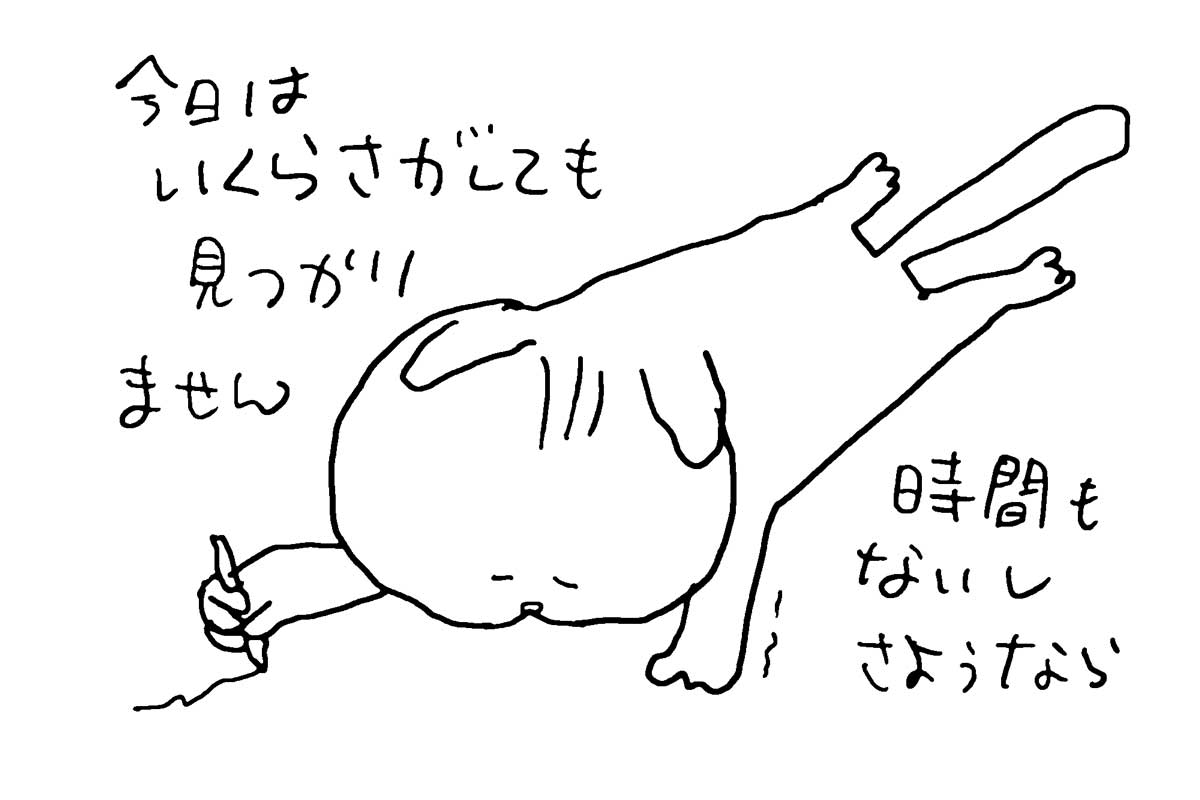 今日は
いくらさがしても
見つかり
ません
時間も
ないし
さようなら